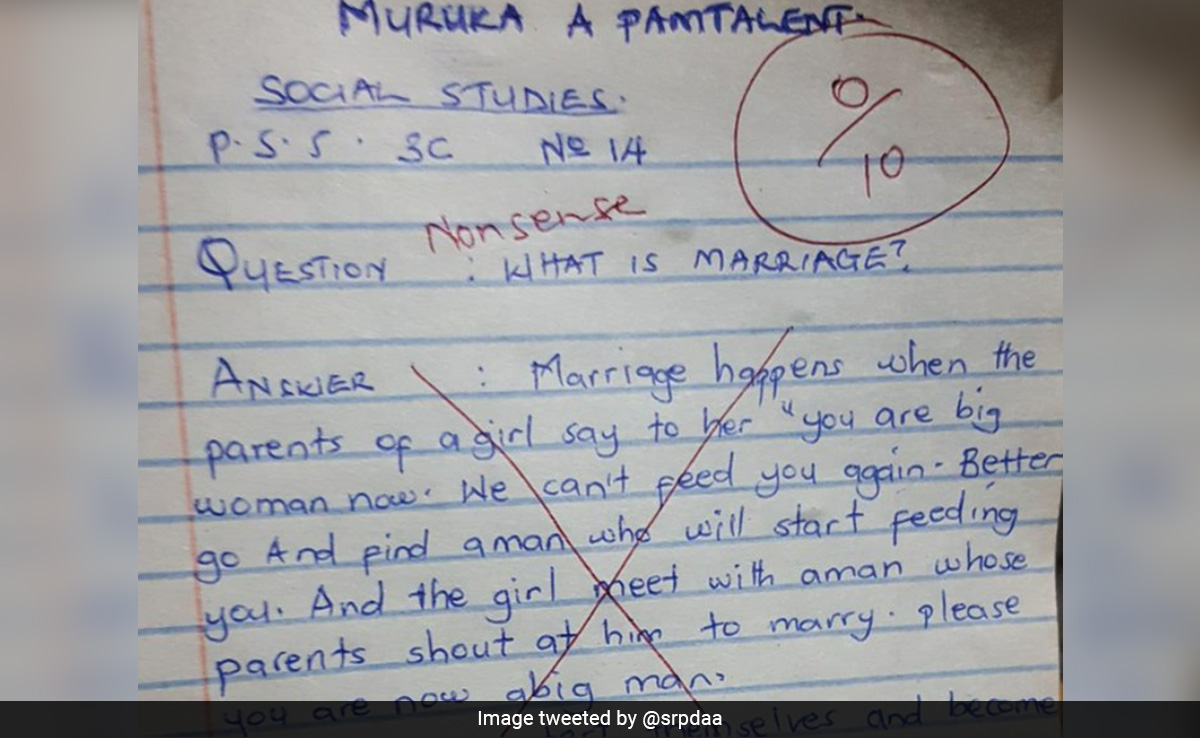 MURUKA A PAMTALENT.
SOCIAL STUDIES.
P.S.S. 3C No 14
0/10
Nonsense
QUESTION : WHAT IS MARRIAGE?
ANSWER : Marriage happens when the
parents of a girl say to her "you are big
woman now. We can't feed you again. Better
go And find aman who will start feeding
you. And the girl meet with aman whose
parents shout at him to marry. please
you are now abig man.
themselves and become
Image tweeted by @srpdaa